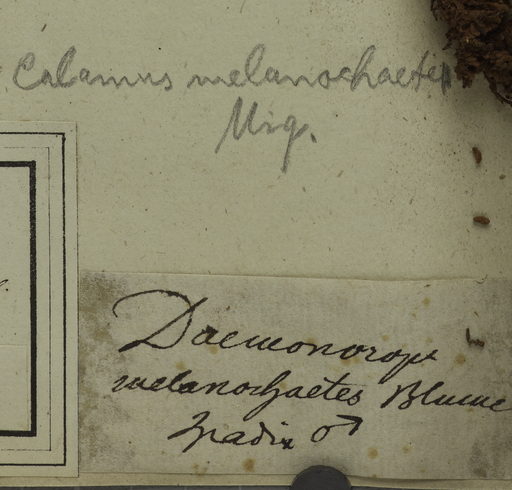 Calamus melanochaetes
Miq.
Daemonorops
melanochaetes Blume
spadix ♂